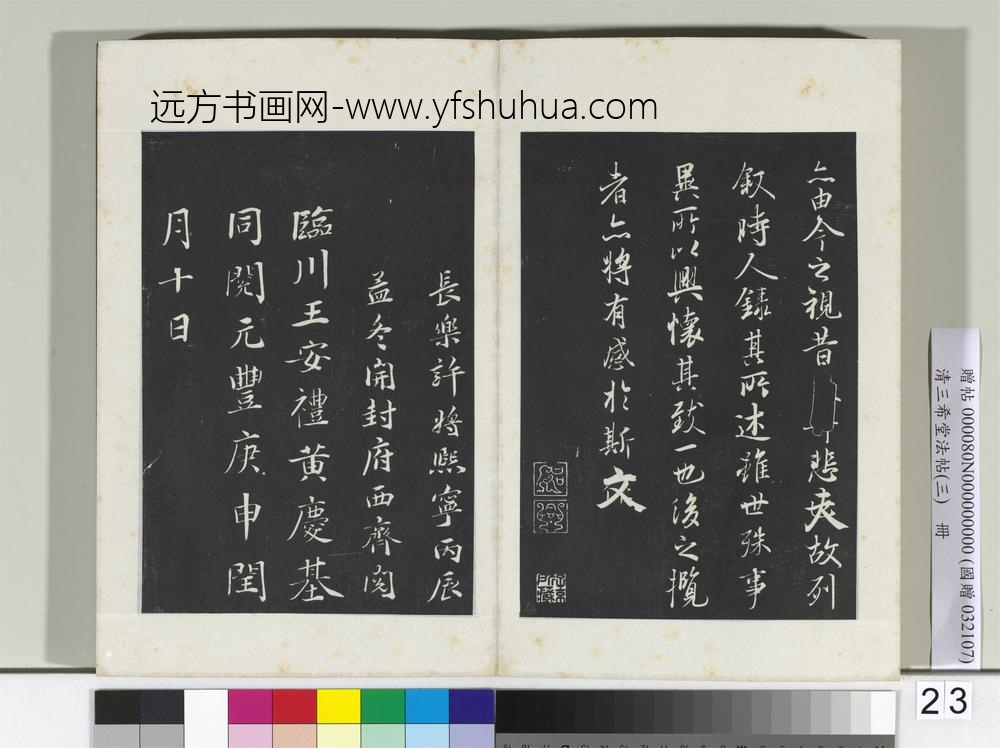 远方书画网-www.yfshuhua.com
亦由今之視昔悲夫故列
叙時人錄其所述雖世殊事
異所以興懷其致一也後之攬
者亦將有感於斯文
長樂許將熙寧丙辰
孟冬開封府西齋閱
臨川王安禮黃慶基
同閱元豐庚申閏
月十日
贈帖 000080N000000000 (國贈 032107)
清三希堂法帖(三) 冊
23